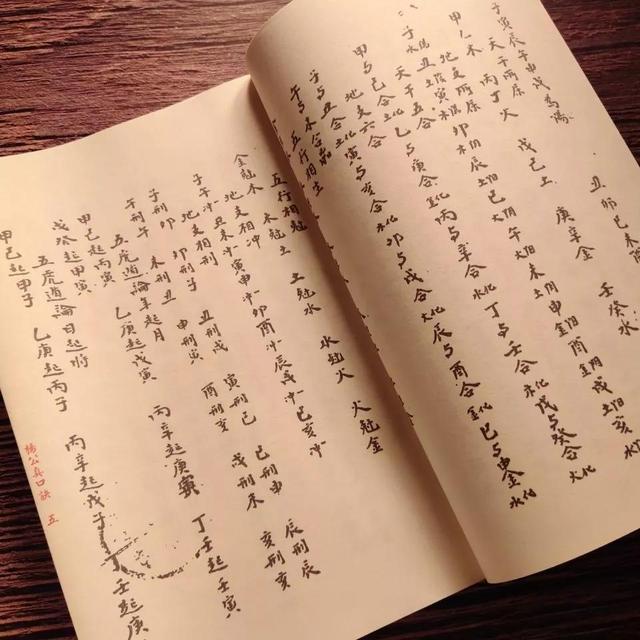 子寅辰午申戌為陽 丑卯巳未
天干所屬
甲乙木 丙丁火 戊己土 庚辛金 壬癸水
地支所屬
子水 丑土 寅木 卯木 辰土阳 巳火阴 午火阳 未土阴 申金阳 酉金阴 戌土阳 亥水
天干五合
甲与己合土化 乙与庚合金化 丙与辛合水化 丁与壬合木化 戊与癸合火化
地支六合
子与丑合土化 寅与亥合木化 卯与戌合火化 辰与酉合金化 巳与申合水化
午与未合
五行相生
五行相尅
金尅木 木尅土 土尅水 水尅火 火尅金
地支相冲
子午冲 丑未冲 寅申冲 卯酉冲 辰戌冲 巳亥冲
地支相刑
子刑卯 卯刑子 丑刑戌 寅刑巳 巳刑申 辰刑辰
午刑午 未刑丑 申刑寅 酉刑亥 戌刑未 亥刑亥
五虎遁論年起月
甲己起丙寅 乙庚起戊寅 丙辛起庚寅 丁壬起壬寅
戊癸起甲寅
五虎遁論日起時
甲己起甲子 乙庚起丙子 丙辛起戊子 壬起庚
楊公真口訣 五